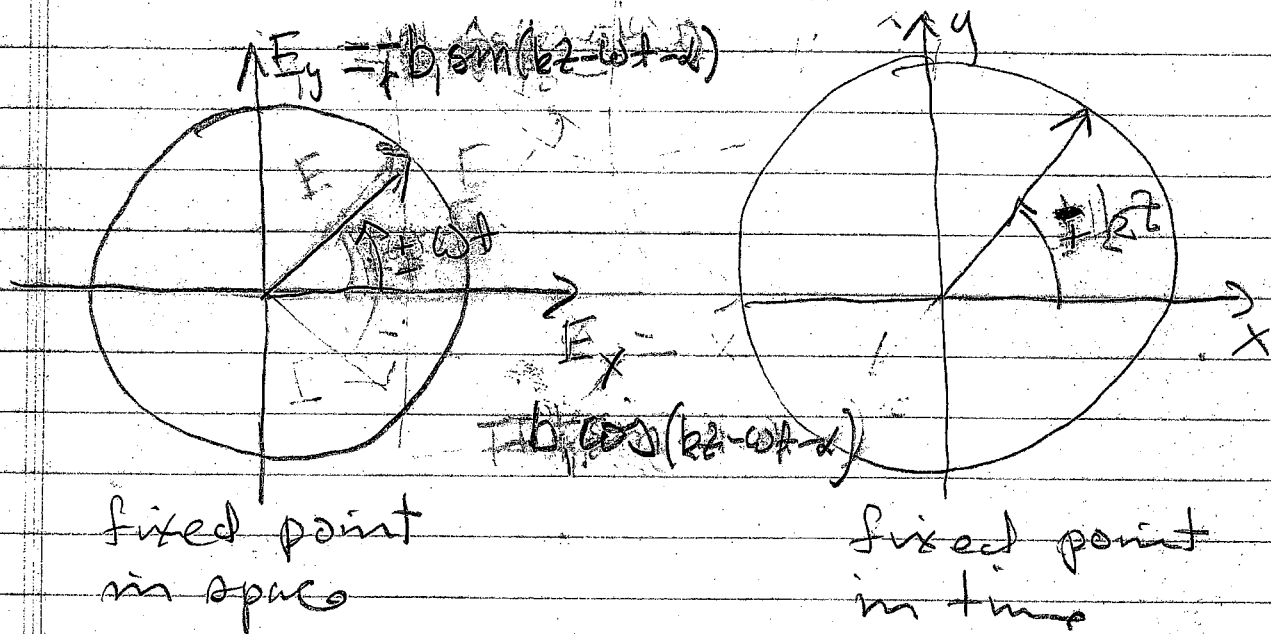 E_y = ∓ b₁ sin(kz-ωt-α)
y
E
± ωt
∓ kz
E_x =
x
b₁ cos(kz-ωt-α)
fixed point
in space
fixed point
in time